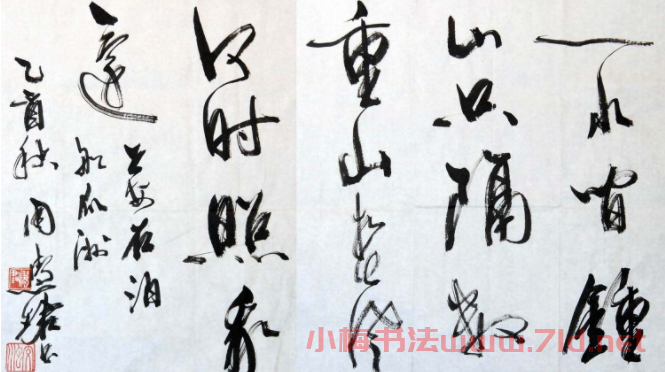 一水间鍾
山只隔数
重山春风
何时照我
還
王安石泊
船瓜洲
乙酉秋周慧珺书
小梅书法www.7ld.net